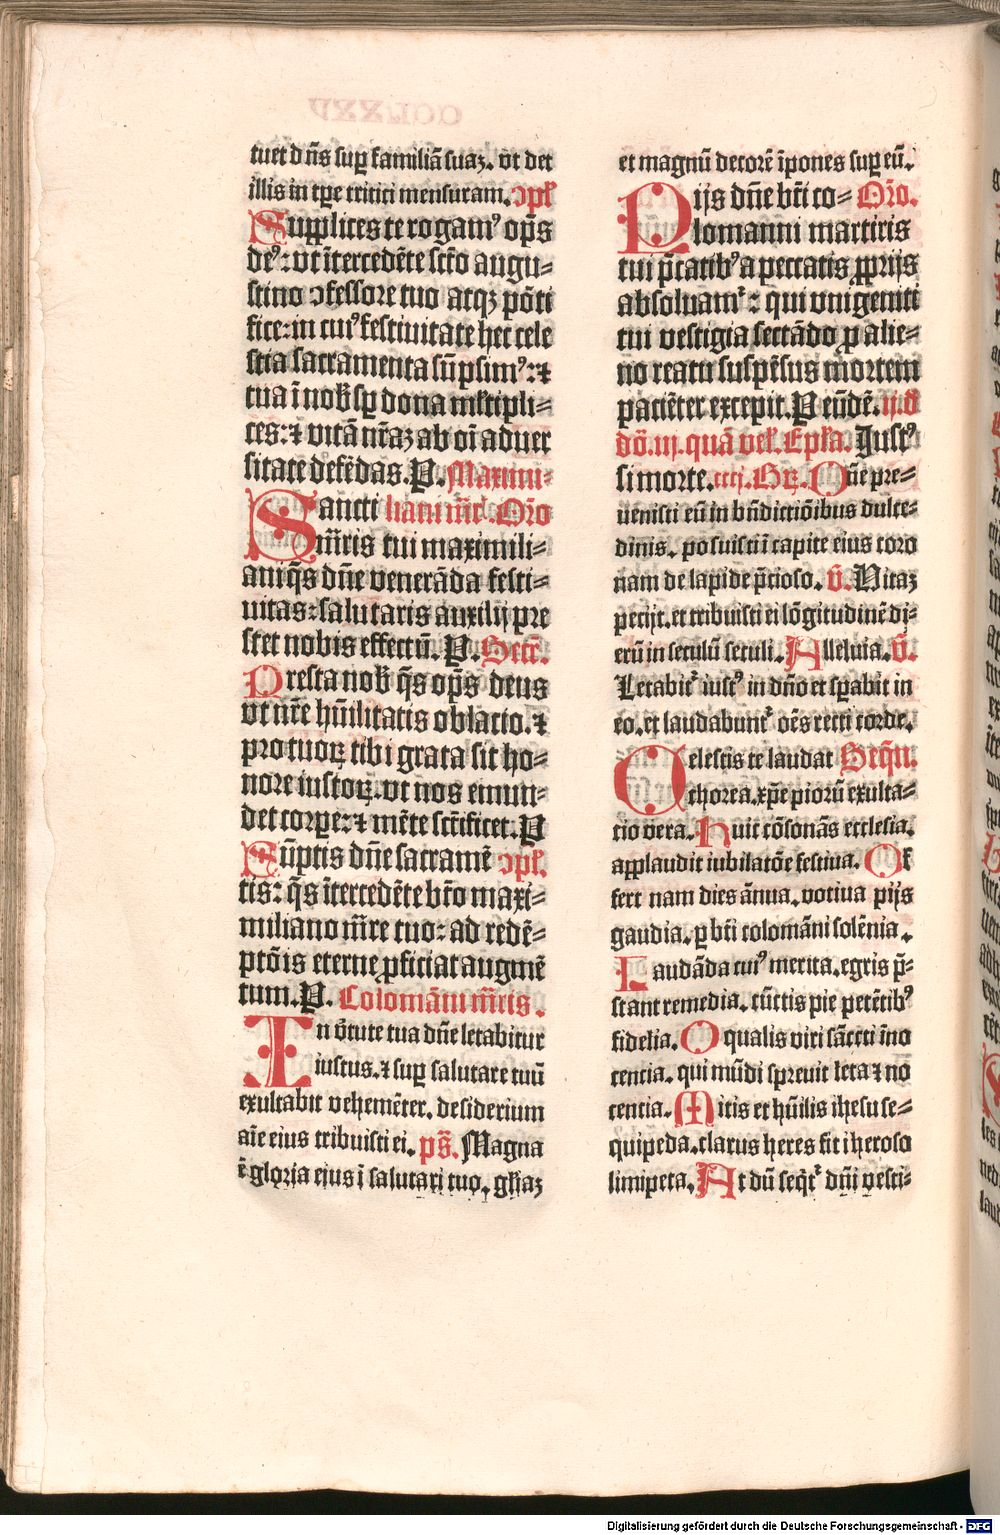 tuet dñs sup familiã suaz. vt det
illis in tpe tritici mensuram. ɔpl̃
Supplices te rogamꝰ op̃s
deꝰ: vt ĩtercedẽte sct̃o augu=
stino ɔfessore tuo atqz põti
fice: in cuiꝰ festiuitate hec cele
stia sacramenta sũpsimꝰ: ⁊
tua ĩ nob̃ sp̱ dona ml̃tipli=
ces: ⁊ vitã nr̃az ab oĩ aduer
sitate defẽdas. P. Maximi-
Sancti liani mr̃. Or̃o
mr̃ris tui maximili=
ani q̃s dñe venerãda festi=
uitas: salutaris auxilij pre
stet nobis effectũ. P. Secr̃.
Presta nob̃ q̃s op̃s deus
vt nr̃e hũilitatis oblatio. ⁊
pro tuoꝝ tibi grata sit ho=
nore iustoꝝ. vt nos emun=
det corpe: ⁊ mẽte sct̃ificet. P
Sũptis dñe sacramẽ ɔpl̃.
tis: q̃s ĩtercedẽte bt̃o maxi=
miliano mr̃re tuo: ad redẽ=
ptõis eterne ꝓficiat augmẽ
tum. P. Colomãni mr̃ris.
In ṽtute tua dñe letabitur
iustus. ⁊ sup salutare tuũ
exultabit vehemẽter. desiderium
aĩe eius tribuisti ei. ps̃. Magna
ẽ gloria eius ĩ salutari tuo. gl̃iaz
et magnũ decorẽ ĩpones sup eũ.
Pijs dñe bt̃i co= Or̃o.
lomanni martiris
tui p̃catibꝰ a peccatis ꝓprijs
absoluamꝛ: qui vnigeniti
tui vestigia sectãdo ꝓ alie=
no reatu suspẽsus mortem
paciẽter excepit. P eũdẽ. ij. d̃
dõ. iij. quã vel̃. Epl̃a. Iustꝰ
si morte. ccrj. Gꝝ. Dñe pre=
uenisti eũ in bñdictiõibus dulce=
dinis. posuisti ĩ capite eius coro
nam de lapide p̃cioso. ṽ. Vitaz
petijt. et tribuisti ei lõgitudinẽ di=
erũ in seculũ seculi. Alleluia. ṽ.
Letabitꝛ iustꝰ in dño et spabit in
eo. et laudabuntꝛ oẽs recti corde.
Celestis te laudat Seqñ.
chorea. xp̃e piorũ exulta=
tio vera. Huic cõsonãs ecclesia.
applaudit iubilatõe festiua. Of
fert nam dies ãnua. votiua pijs
gaudia. p bt̃i colomãni solẽnia.
Laudãda cuiꝰ merita. egris p̃=
stant remedia. cũctis pie petẽtibꝰ
fidelia. O qualis viri sãccti ĩno
centia. qui mũdi spreuit leta ⁊ no
centia. Mitis et hũilis ihesu se=
quipeda. clarus heres fit ĩ heroso
limipeta. At dũ seq̃tꝛ dñi vesti=
Digitalisierung gefördert durch die Deutsche Forschungsgemeinschaft - DFG